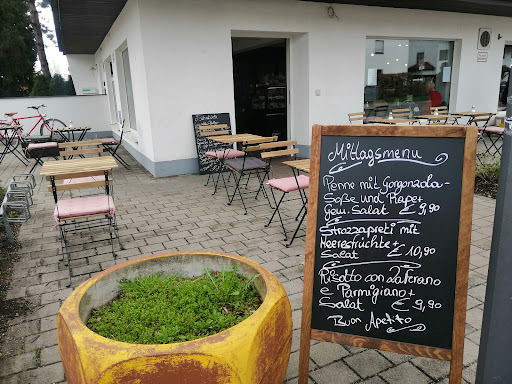 Mittagsmenu
Penne mit Gorgonzola-
Soße und Rape+
Gem. Salat € 9,90
Strozzapreti mit
Meeresfrüchte+
Salat € 10,90
Risotto con Zaferano
e Parmigiano+
Salat € 9,90
Buon Apetito